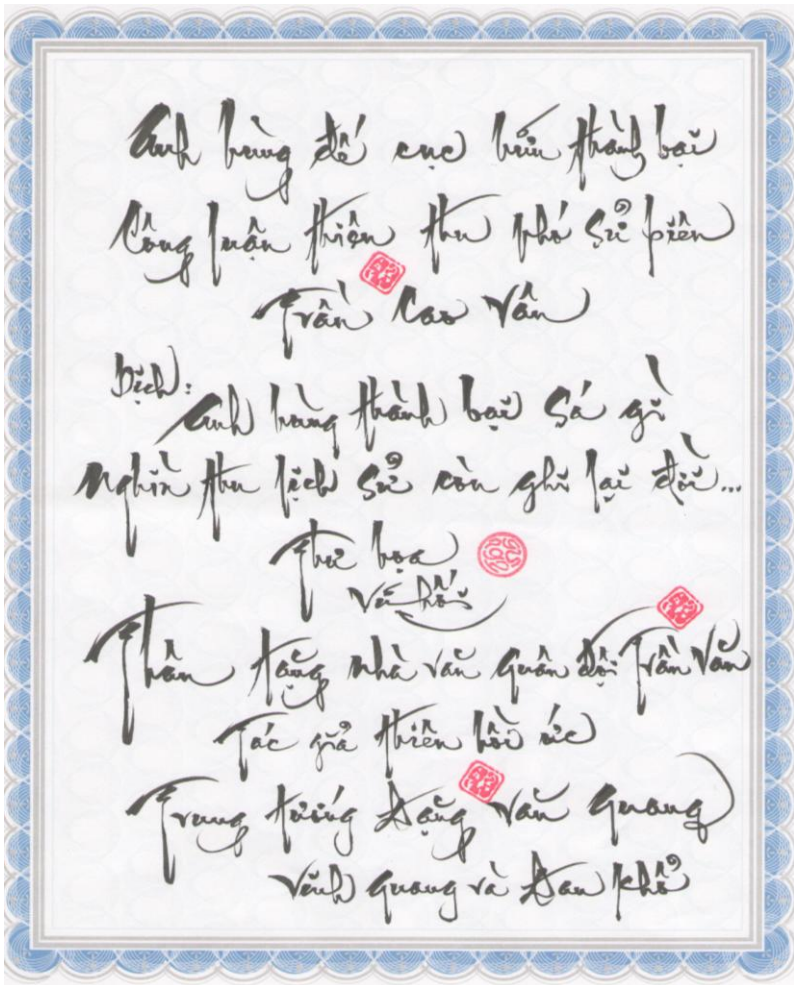 Anh hùng đế cục hưu thành bại
Công luận thiên thu phó sử biên
Trần Cao Vân
Dịch:
Anh hùng thành bại sá gì
Nghìn thu lịch sử còn ghi lại đời...
Thư họa
Vũ Hối
Thân tặng nhà văn quân đội Trần Văn
Tác giả thiên hồi ức
Trung tướng Đặng Văn Quang
Vinh quang và Đau khổ